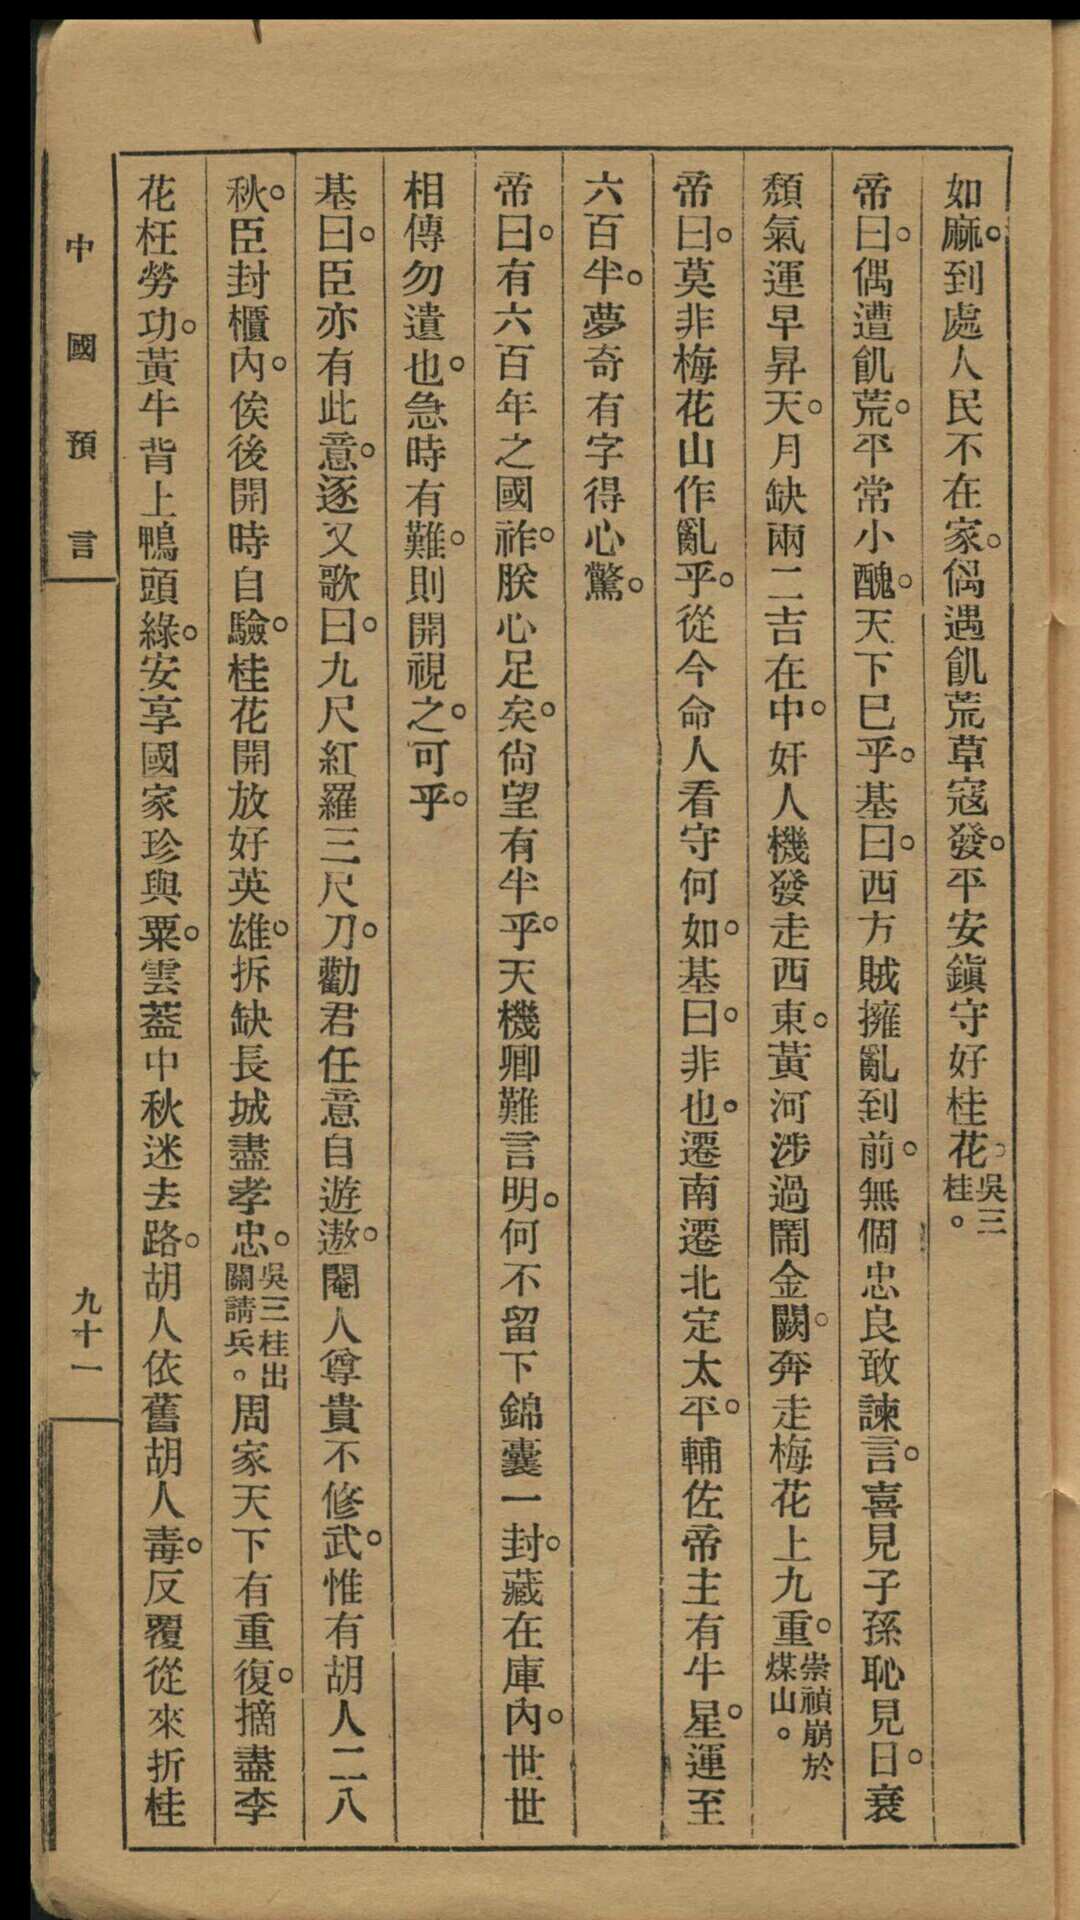 如麻。到處人民不在家。偶遇飢荒草寇發。平安鎮守好桂花。吳三桂。
帝曰。偶遭飢荒。平常小醜。天下巳乎。基曰。西方賊擁亂到前。無個忠良敢諫言。喜見子孫恥見日。衰
頹氣運早昇天。月缺兩二吉在中。奸人機發走西東。黃河涉過鬧金闕。奔走梅花上九重。崇禎崩於煤山。
帝曰。莫非梅花山作亂乎。從今命人看守何如。基曰。非也。遷南遷北定太平。輔佐帝主有牛星。運至
六百半。夢奇有字得心驚。
帝曰。有六百年之國祚。朕心足矣。尙望有半乎。天機卿難言明。何不留下錦囊一封。藏在庫內。世世
相傳勿遺也。急時有難。則開視之。可乎。
基曰。臣亦有此意。逐又歌曰。九尺紅羅三尺刀。勸君任意自遊遨。閹人尊貴不修武。惟有胡人二八
秋。臣封櫃內。俟後開時自驗。桂花開放好英雄。拆缺長城盡孝忠。吳三桂出關請兵。周家天下有重復。摘盡李
花枉勞功。黃牛背上鴨頭綠。安享國家珍與粟。雲葢中秋迷去路。胡人依舊胡人毒。反覆從來折桂
中國預言
九十一